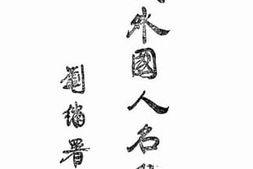 外國人名
劉鏞署